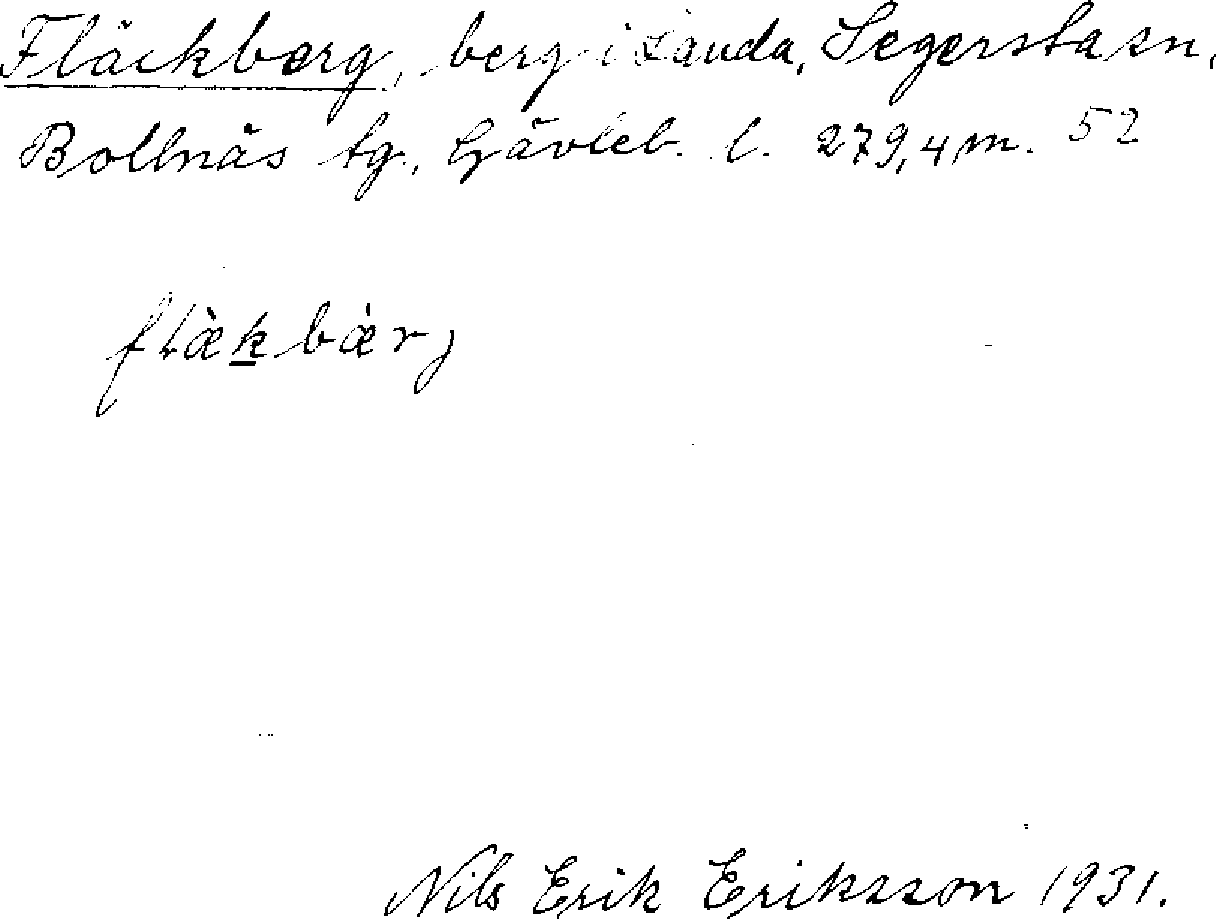 Fläckberg, berg i Landa, Segersta sn,
Bollnäs tg., Gävleb. l. 279,4 m. 52
flæ̀kbær̀j
Nils Erik Eriksson 1931.